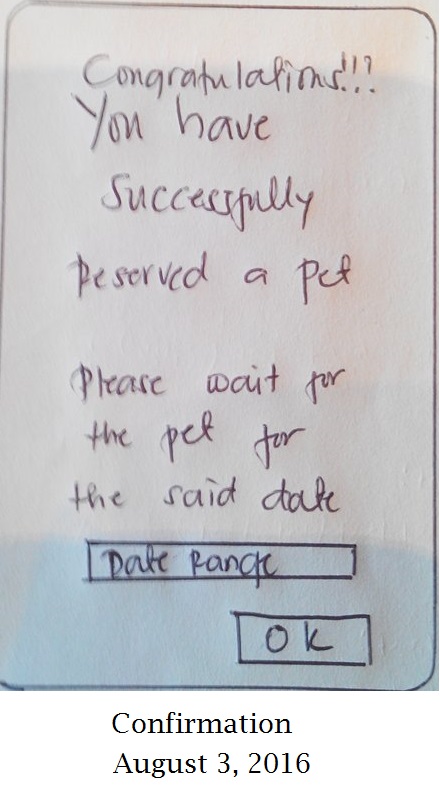 Congratulations!!!
You have
Successfully
Reserved a pet
Please wait for
the pet for
the said date
Date Range
OK
Confirmation
August 3, 2016